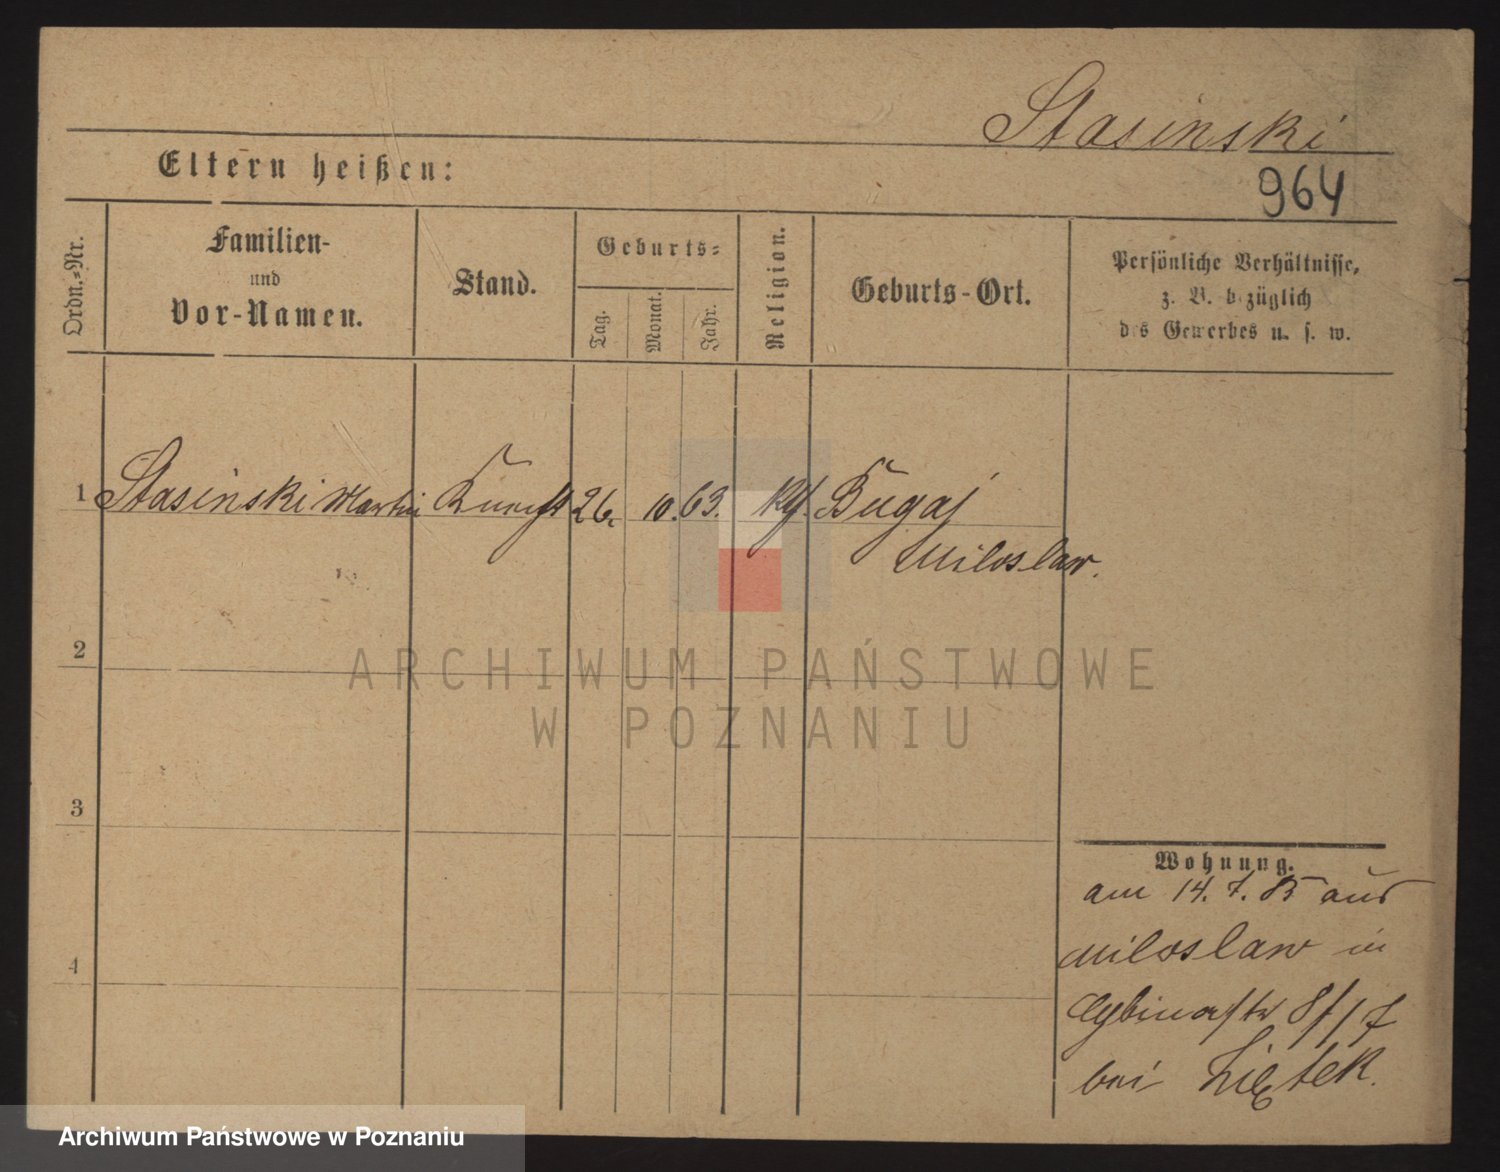 Stasinski
Eltern heißen:
964
Ordn.-Nr.
Familien-
und
Vor-Namen.
Stand.
Geburts-
Tag.
Monat.
Jahr.
Religion.
Geburts-Ort.
Persönliche Verhältnisse,
z. B. bezüglich
des Gewerbes u. s. w.
1 Stasinski Martin Knecht 26. 10. 63. Kth. Bugaj
Miloslaw.
2
ARCHIWUM PAŃSTWOWE
W POZNANIU
3
Wohnung.
am 14. 7. 85 aus
Miloslaw in
4
Cybinastr 8/17
bei Ziętek.
Archiwum Państwowe w Poznaniu